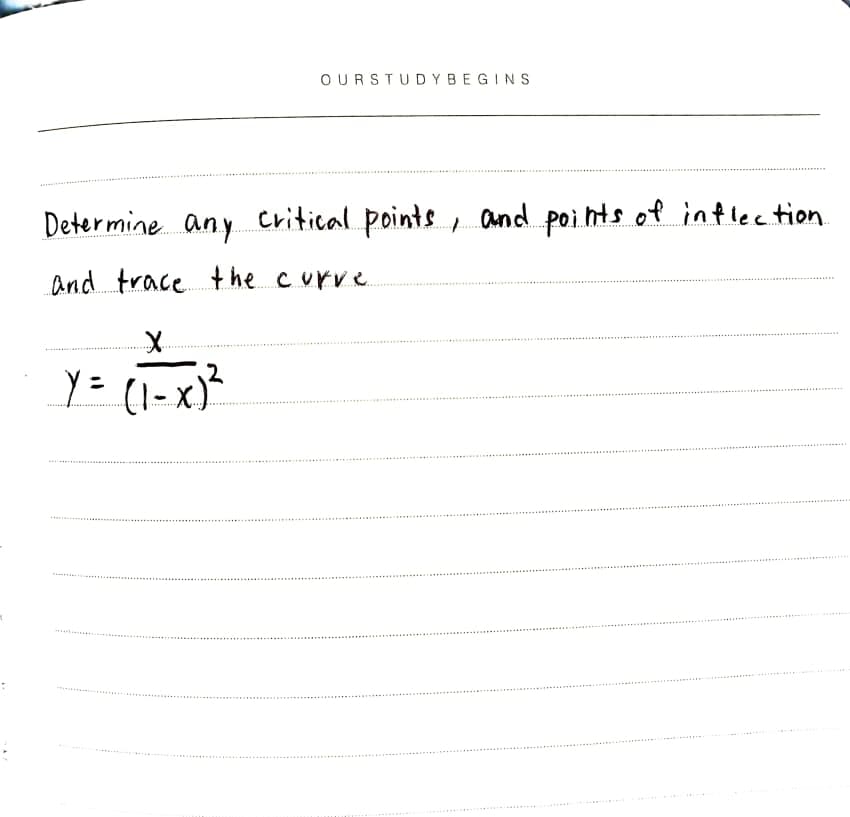 OURSTUDYBEGINS
Determine any critical points, and points of inflection
and trace the curve
y = x/(1-x)²